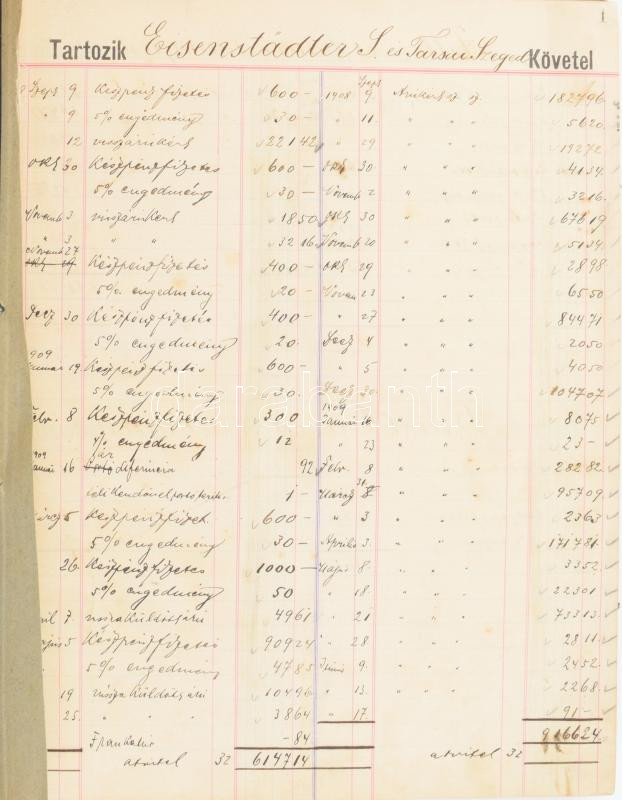 1
Tartozik Eisenstädter S. és Társai Szeged Követel
Szept 9 Készpénzfizetés 600 – 1908 Szept 9. 1827 96
" 9 5% engedmény 30 – " 11 " " " 56 20
12 visszáruként 221 42 " 29 " " " 192 72
Okt 30 Készpénzfizetés 600 – Okt 30 " " " 41 34
5% engedmény 30 – Novemb 2 " " " 32 16
Novemb 3 visszáruként 18 50 Okt 30 " " " 676 19
" 3 " " 32 16 Novemb 20 " " " 51 34
Novemb 27 Készpénzfizetés 400 – Okt 29 " " " 28 98
5% engedmény 20 – Novem 23 " " " 65 50
Decz 30 Készpénzfizetés 400 – " 27 " " " 844 71
5% engedmény 20 Decz 4 " " " 20 50
1909 Január 19. Készpénzfizetés 600 – " 5 " " " 40 50
5% engedmény 30. Decz 30 " " " 1047 07
Febr. 8 Készpénzfizetés 300 1909 Január 16 " " " 80 75
4% engedmény 12 " 23 " " " 23 –
1909 Január 16 ár differencia 92 Febr. 8 " " " 282 82
1 – Márcz 8 " " " 957 09
Márcz 5 Készpénzfizet. 600 – " 3 " " " 23 63
5% engedmény 30 – Április 3. " " " 1717 81
26. Készpénzfizetés 1000 – Május 8 " " " 33 52
5% engedmény 50 " 18 " " " 223 01
7. vissza küldött áru 49 61 " 21 " " " 733 13
5 Készpénzfizetés 909 24 " 28 " " " 28 11
5% engedmény 47 85 Juni 9. " " " 24 52
19 vissza küldött áru 104 96 " 13. " " " 22 68
25. " " " 38 64 " 17. 91 –
Frankatur – 84 9166 24
átvitel 32 6147 14 átvitel 32
darabanth